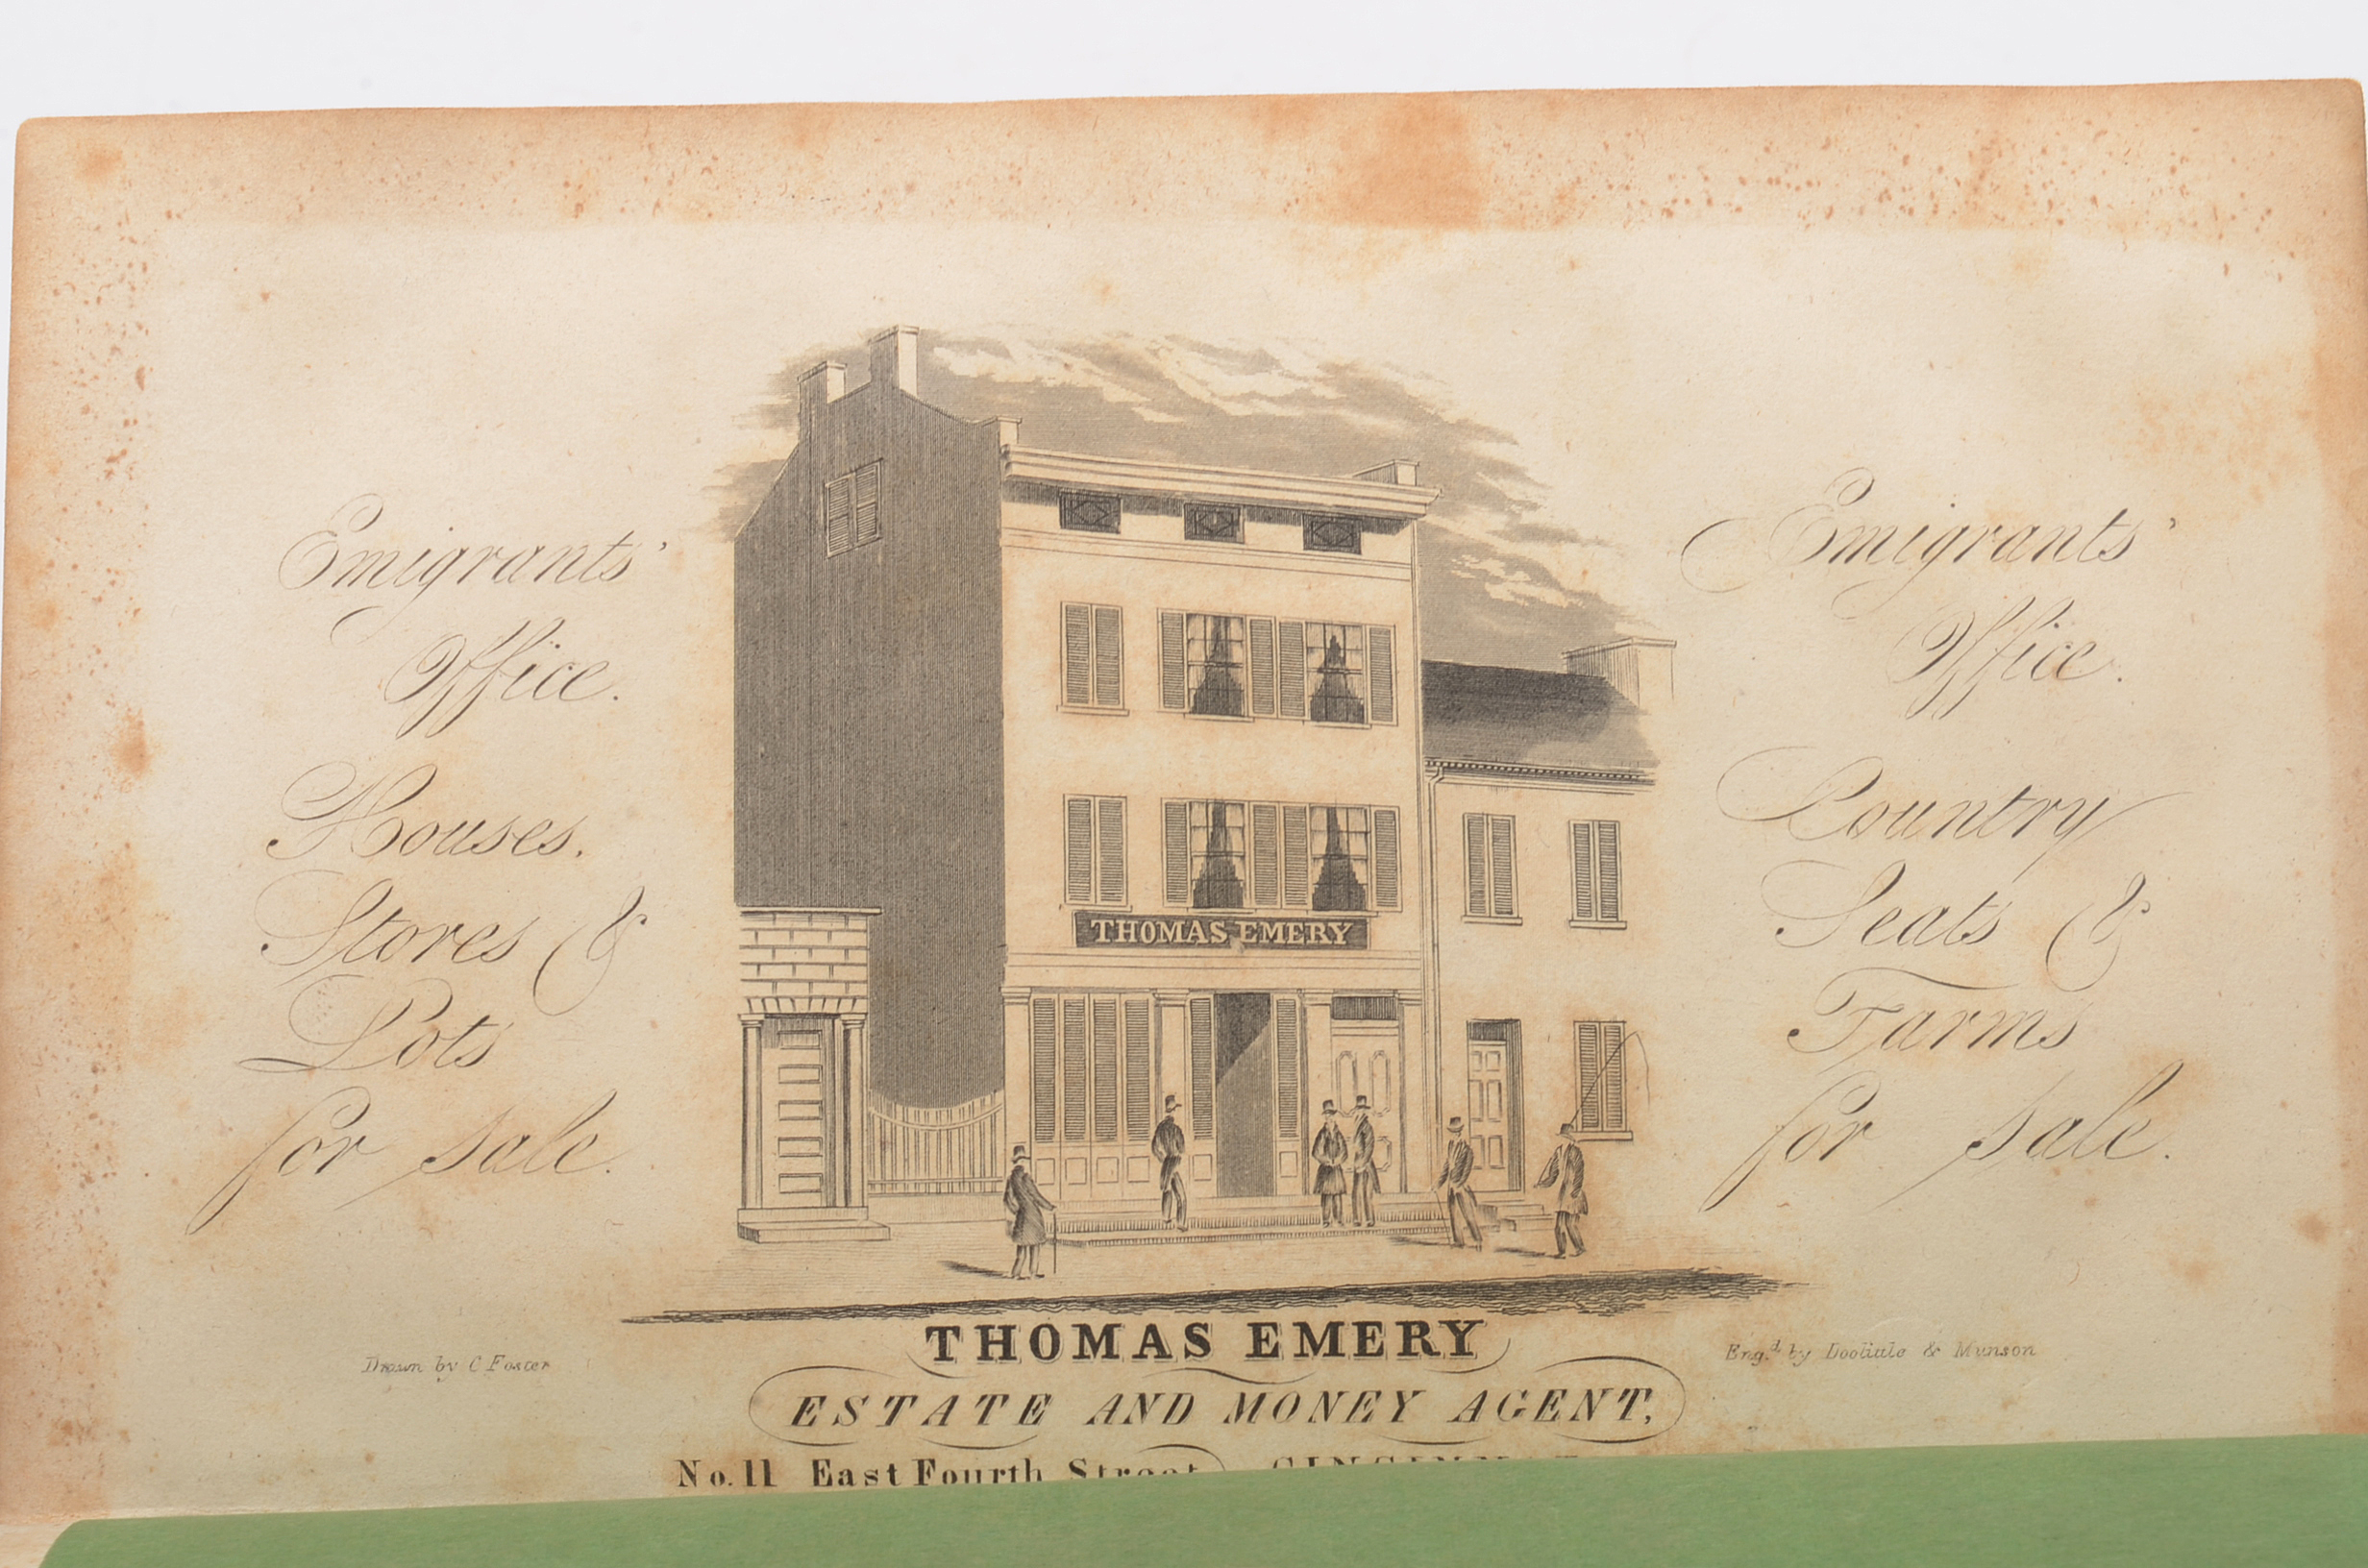 Emigrants'
Office.
Houses.
Stores &
Lots
for sale.
Emigrants'
Office.
Country
Seats &
Farms
for sale.
THOMAS EMERY
Drawn by C Foster
Eng.d by Doolittle & Munson
THOMAS EMERY
ESTATE AND MONEY AGENT,
No. 11 East Fourth Street